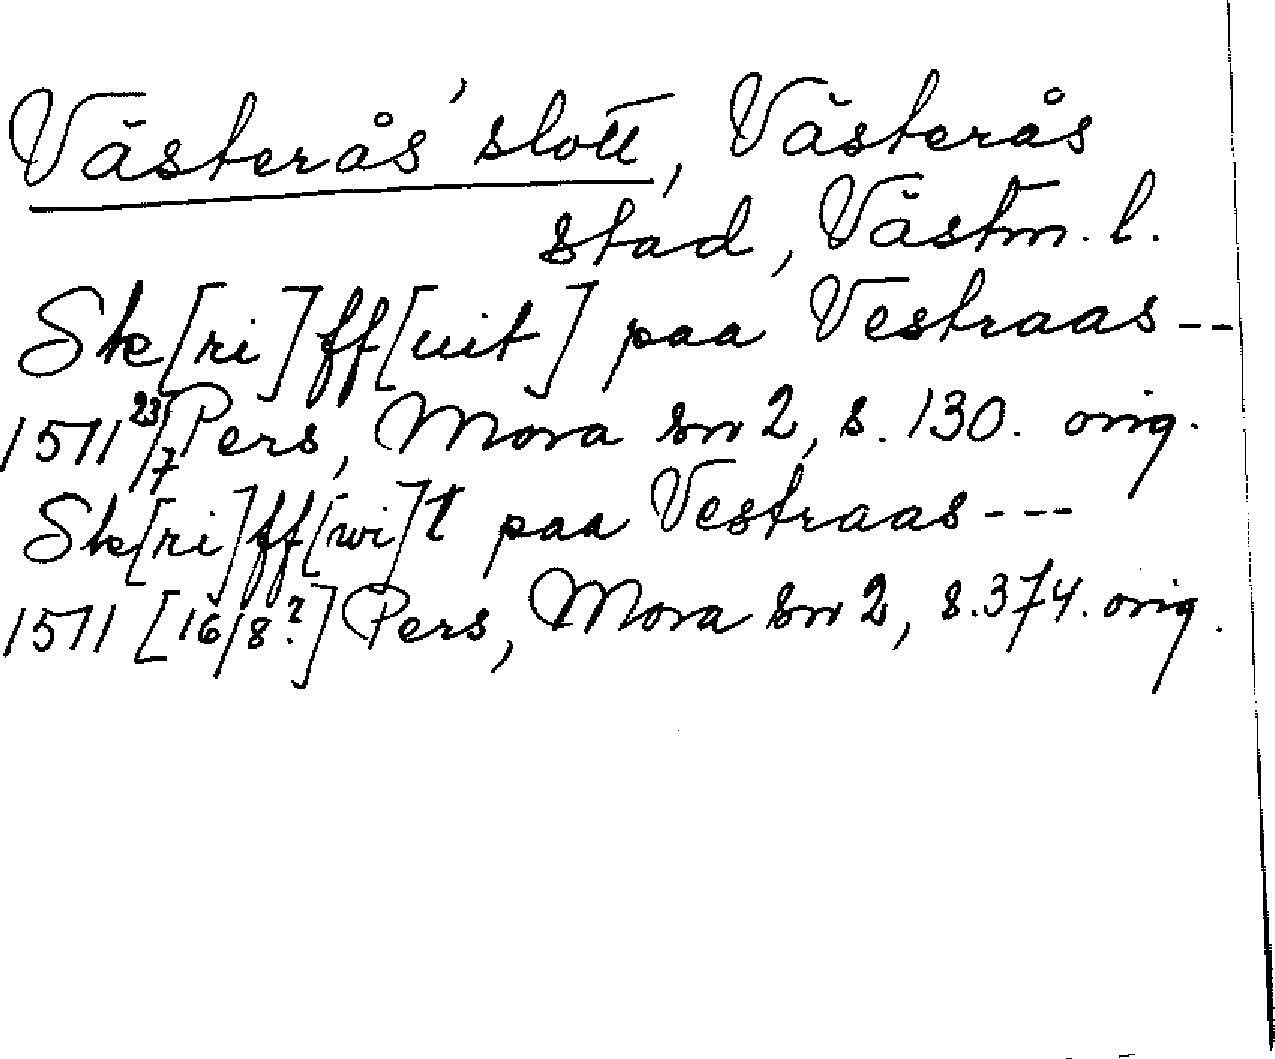 Västerås' slott, Västerås
stad, Västm. l.
Sk[ri]ff[uit] paa Vestraas --
1511 23/7 Pers, Mora sn 2, s. 130. orig.
Sk[ri]ff[wi]t paa Vestraas ---
1511 [16/8?] Pers, Mora sn 2, s. 374. orig.